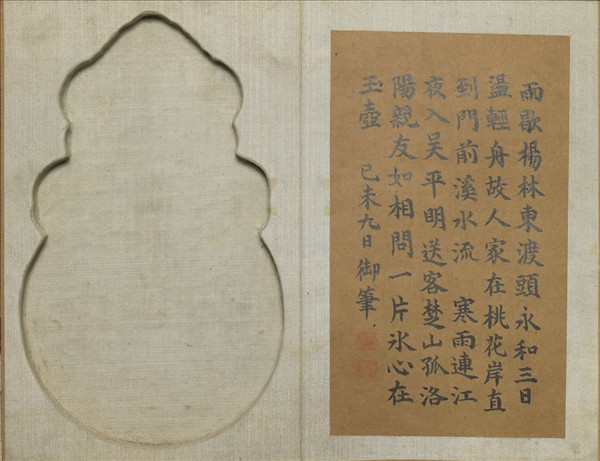 雨歇楊林東渡頭永和三日
盪輕舟故人家在桃花岸直
到門前溪水流　寒雨連江
夜入吴平明送客楚山孤洛
陽親友如相問一片氷心在
玉壺　己未九日御筆